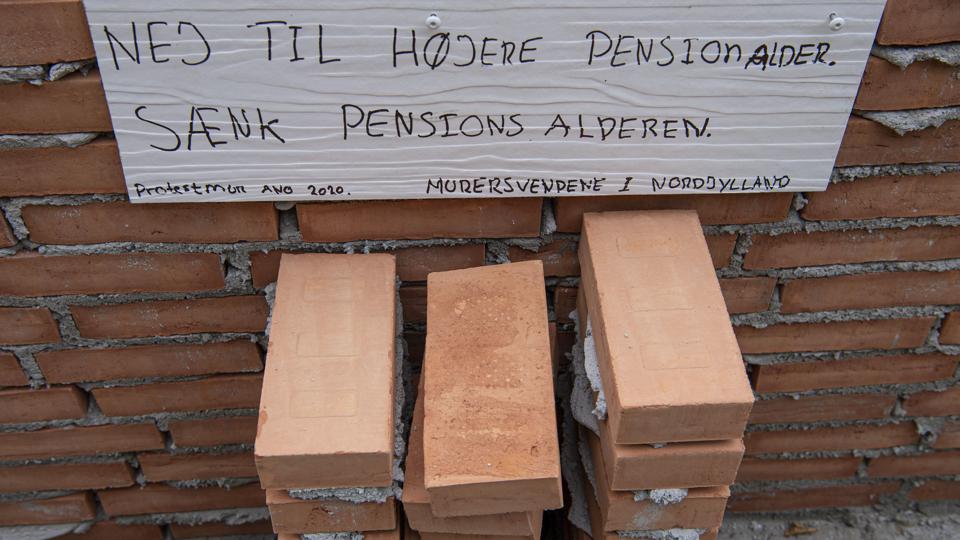 NEJ TIL HØJERE PENSIONALDER.
SÆNK PENSIONS ALDEREN.
Protestmur ANO 2020. MURERSVENDENE I NORDJYLLAND